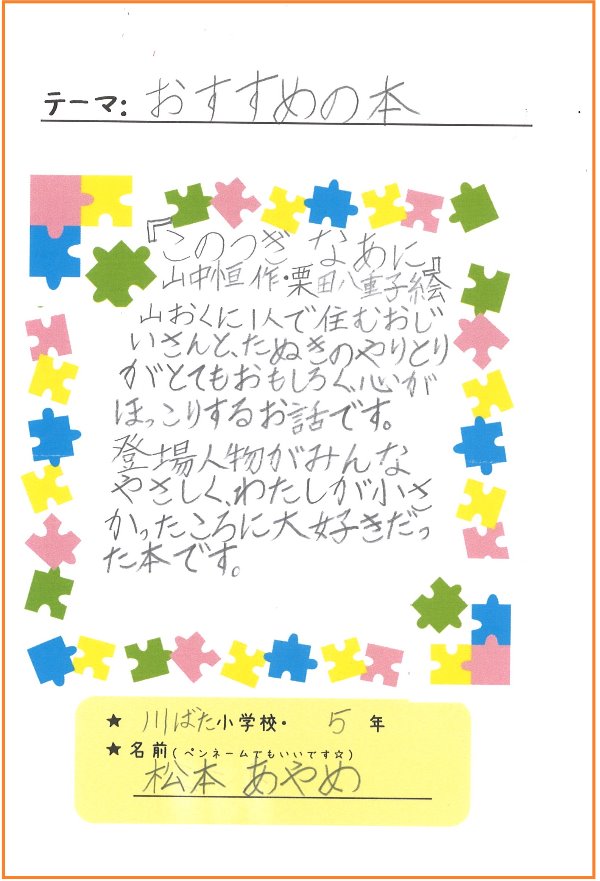 テーマ: おすすめの本
『このつぎ なあに』
山中恒 作・栗田八重子 絵
山おくに1人で住むおじ
いさんと、たぬきのやりとり
がとてもおもしろく、心が
ほっこりするお話です。
登場人物がみんな
やさしく、わたしが小さ
かったころに大好きだっ
た本です。
★ 川ばた小学校・ 5 年
★ 名前(ペンネームでもいいです☆)
松本 あやめ